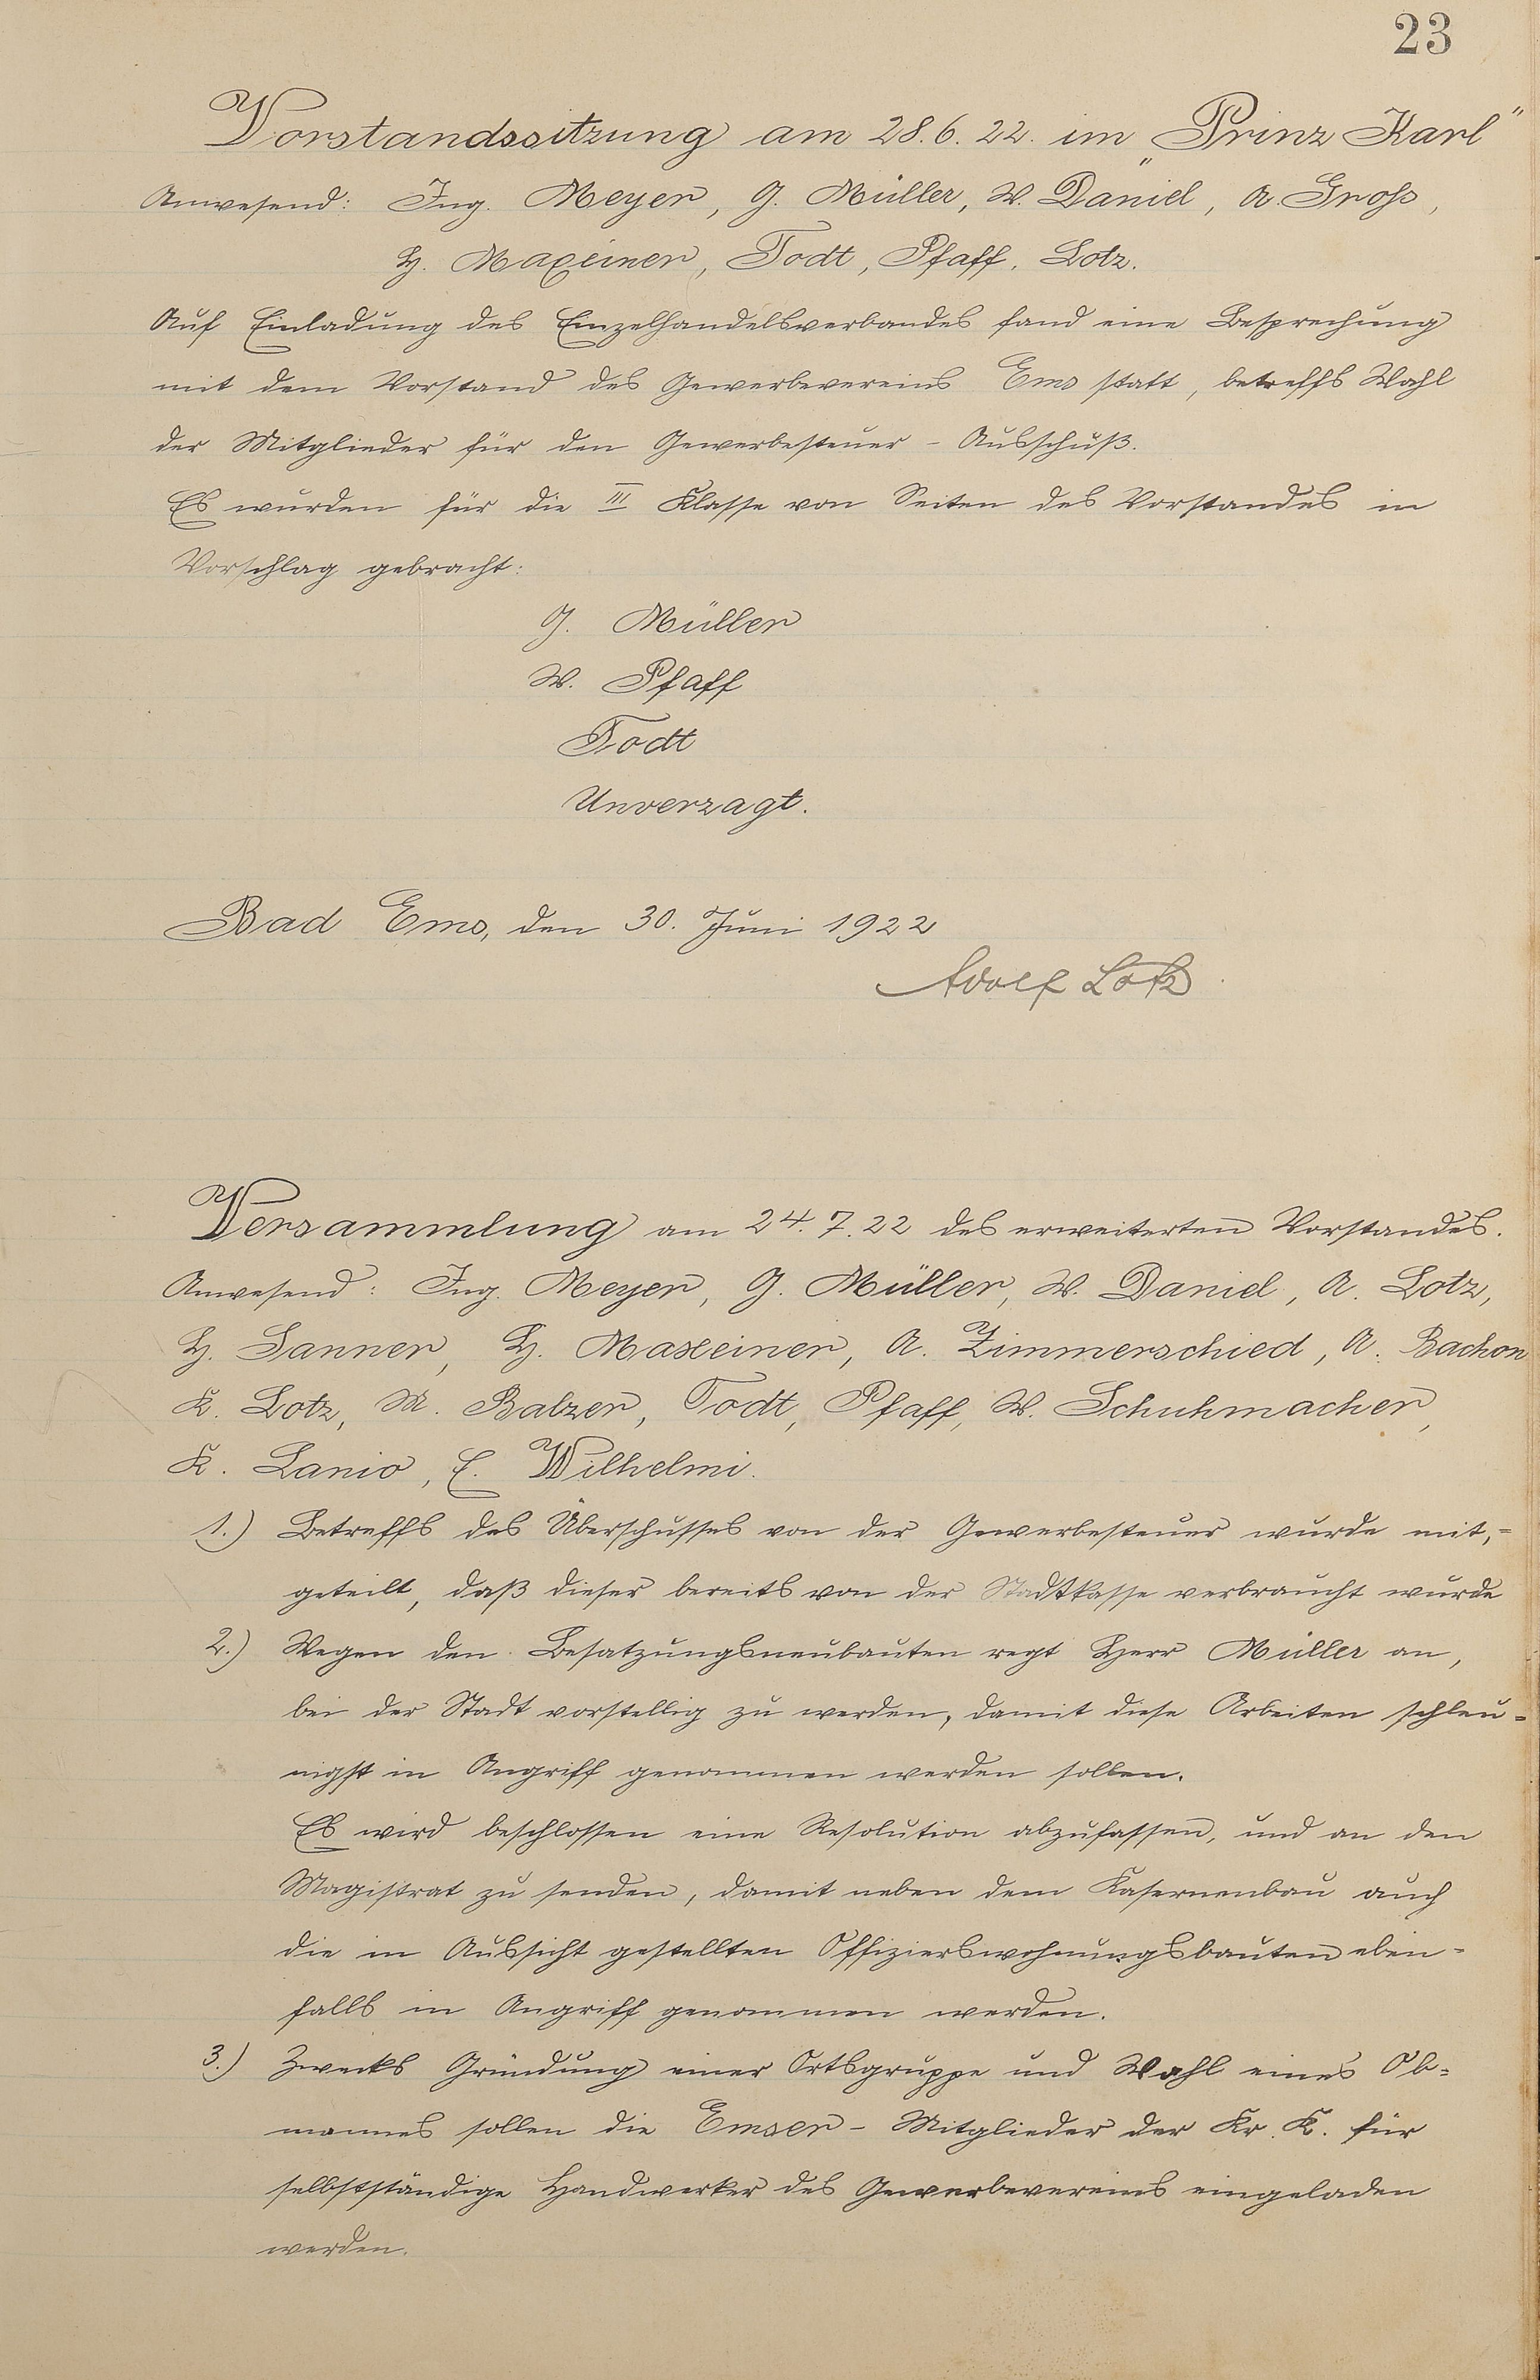 23
Vorstandssitzung am 28.6.22. im „Prinz Karl“
Anwesend: Ing. Meyer, G. Müller, W. Daniel, A. Groß,
H. Maxeiner, Todt, Pfaff, Lotz.
Auf Einladung des Einzelhandelsverbandes fand eine Besprechung
mit dem Vorstand des Gewerbevereins Ems statt, betreffs Wahl
der Mitglieder für den Gewerbesteuer - Ausschuß.
Es wurden für die III Klasse von Seiten des Vorstandes in
Vorschlag gebracht:
G. Müller
W. Pfaff
Todt
Unverzagt.
Bad Ems, den 30. Juni 1922
Adolf Lotz.
Versammlung am 24.7.22 des erweiterten Vorstandes.
Anwesend: Ing. Meyer, G. Müller, W. Daniel, A. Lotz,
H. Sanner, H. Maxeiner, A. Zimmerschied, A. Bachon
K. Lotz, M. Balzer, Todt, Pfaff, W. Schuhmacher,
K. Lanio, E. Wilhelmi.
1.) Betreffs des Überschusses von der Gewerbesteuer wurde mit,=
geteilt, daß dieser bereits von der Stadtkasse verbraucht wurde
2.) Wegen den Besatzungsneubauten regt Herr Müller an,
bei der Stadt vorstellig zu werden, damit diese Arbeiten schleu=
nigst in Angriff genommen werden sollen.
Es wird beschlossen eine Resolution abzufassen, und an den
Magistrat zu senden, damit neben dem Kasernenbau auch
die in Aussicht gestellten Offizierswohnungsbauten eben=
falls in Angriff genommen werden.
3.) Zwecks Gründung einer Ortsgruppe und Wahl eines Ob=
mannes sollen die Emser - Mitglieder der Kr. K. für
selbstständige Handwerker des Gewerbevereins eingeladen
werden.